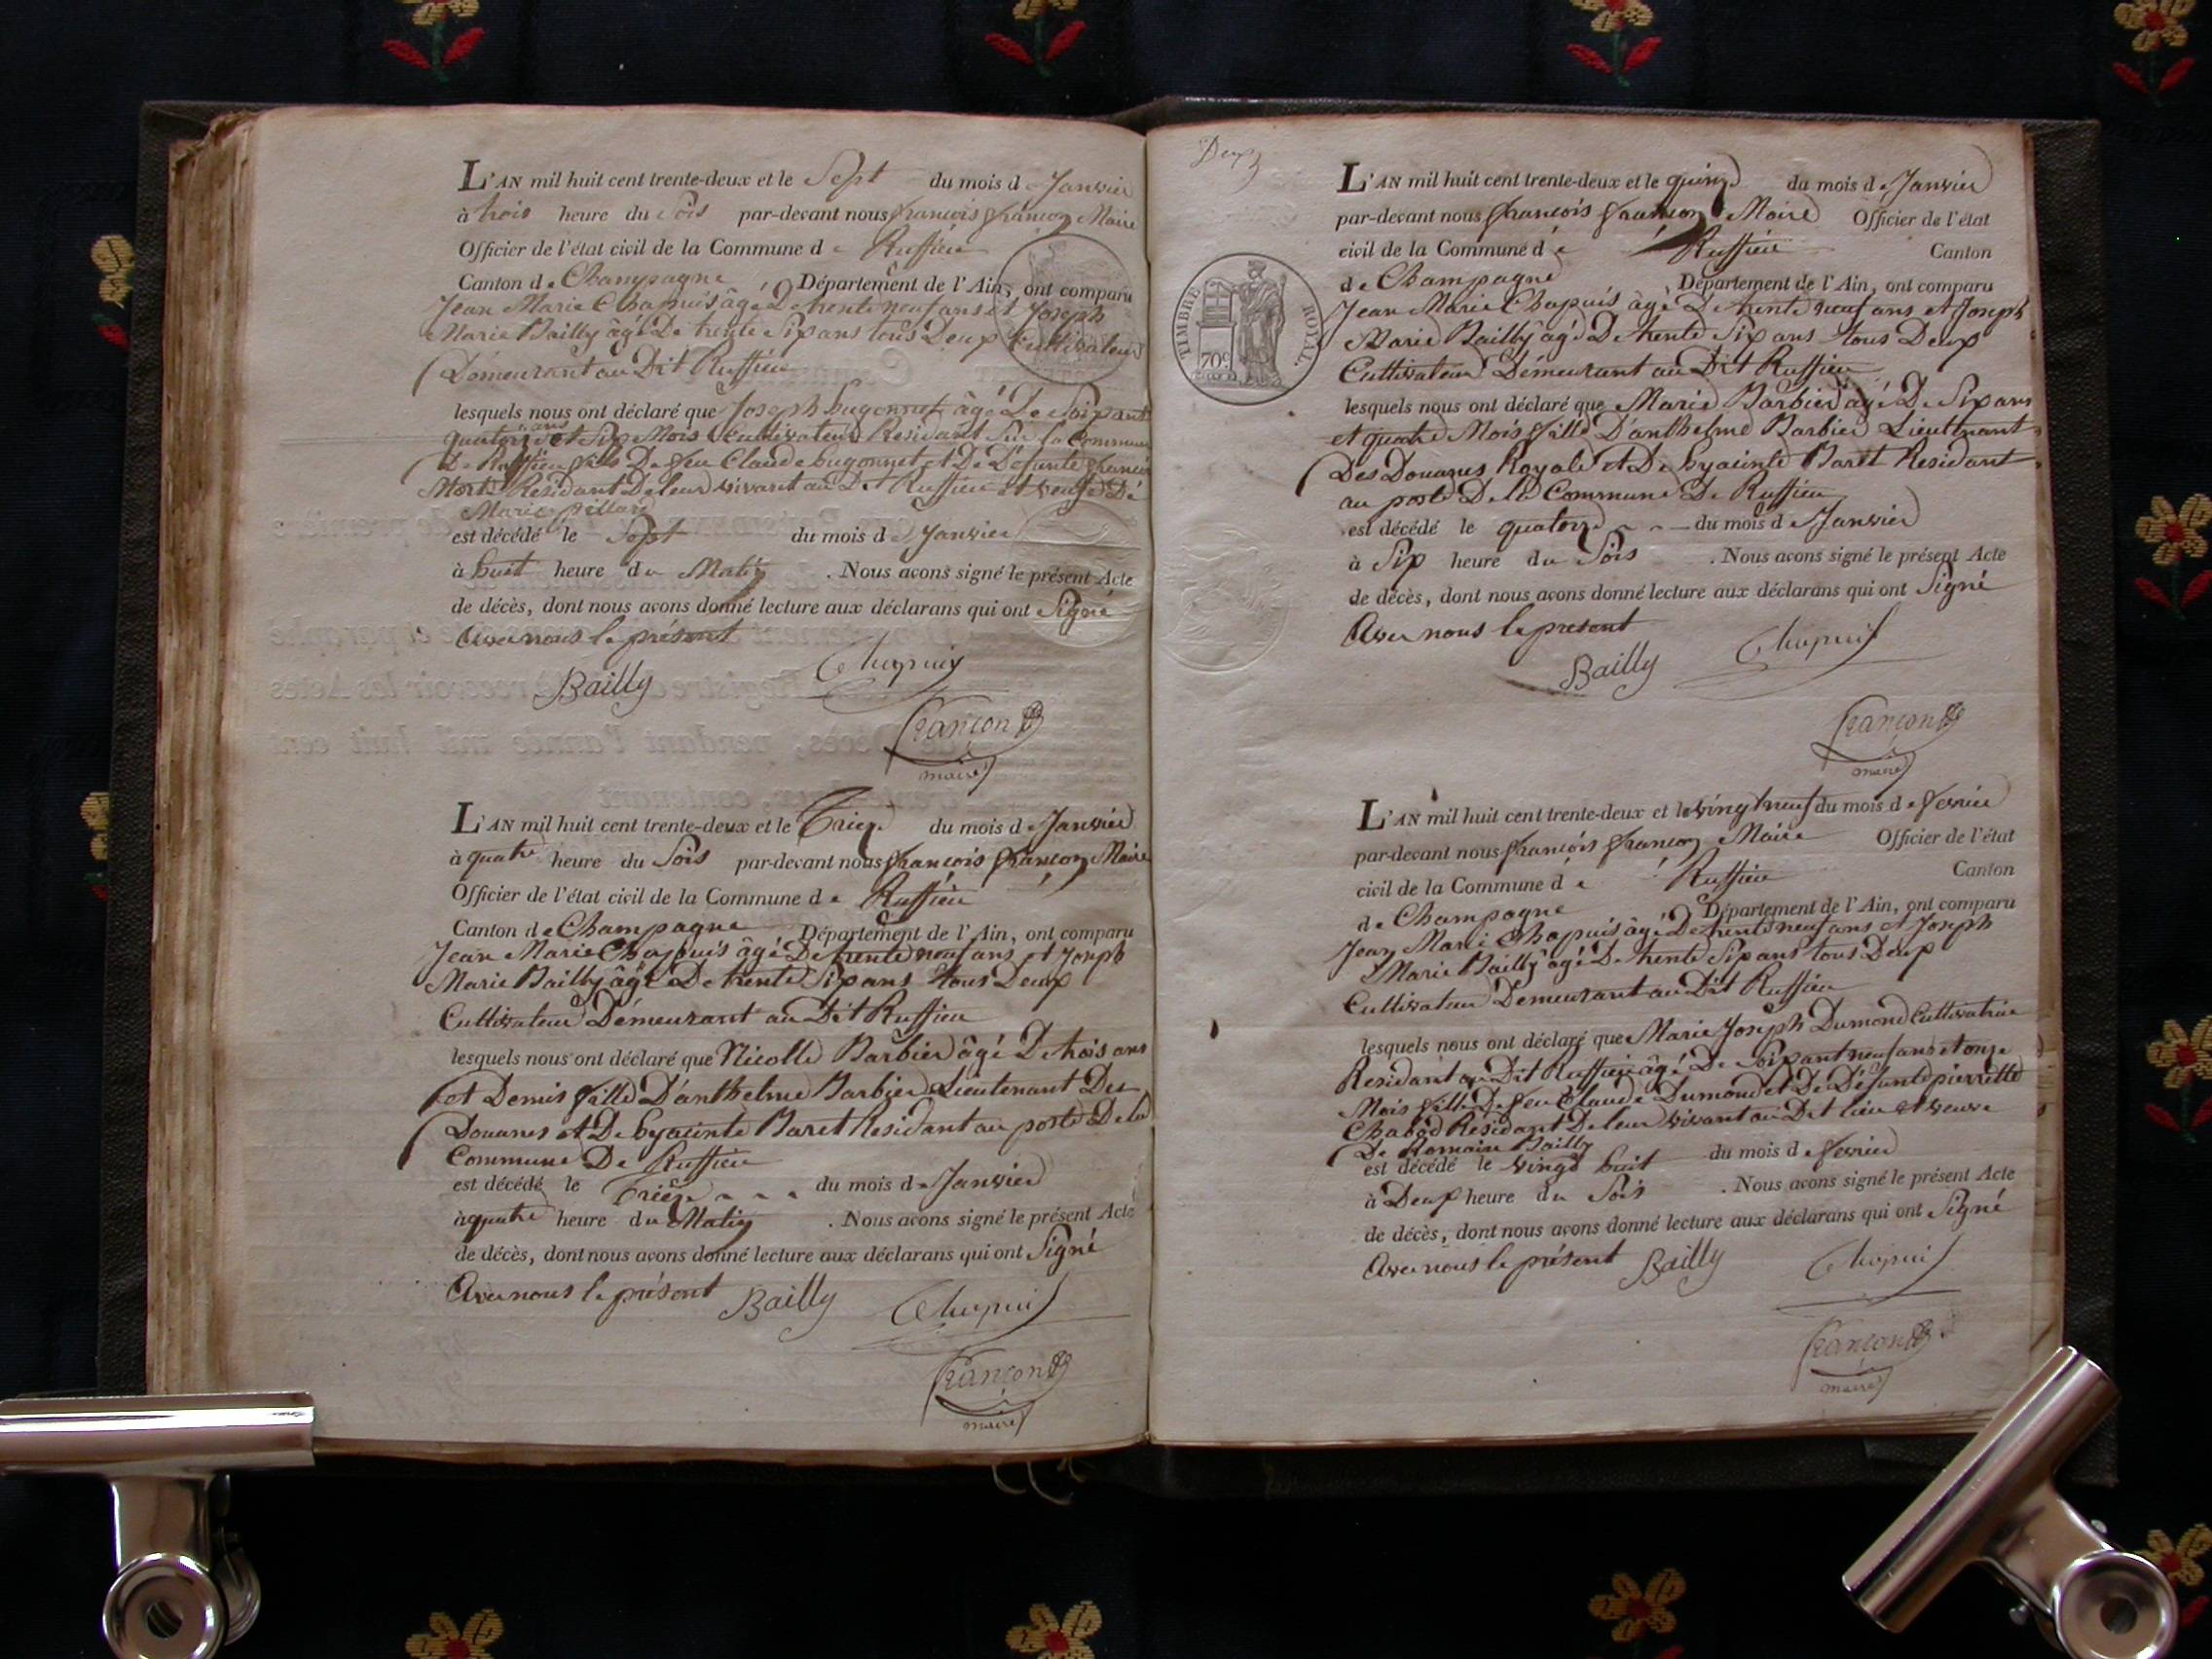 L'AN mil huit cent trente-deux et le Sept du mois de Janvier
à trois heure du Soir par-devant nous françois françon Maire
Officier de l'état civil de la Commune de Ruffieu
Canton de Champagne Département de l'Ain, ont comparu
Jean Marie Chapuis âgé De trente neuf ans et Joseph
Marie Bailly âgé De trente Six ans tous Deux Cultivateur
Demeurant au Dit Ruffieu
lesquels nous ont déclaré que Joseph hugonnet âgé De Soixante
quatorze ans et Six Mois Cultivateur Residant Sur la Commune
De Ruffieu fils De feu Claude hugonnet et De Defunte
Residant De leur vivant au Dit Ruffieu et veuf De
Marie
est décédé le Sept du mois de Janvier
à huit heure du Matin . Nous avons signé le présent Acte
de décès, dont nous avons donné lecture aux déclarans qui ont Signé
Avec nous le présent
Bailly Chapuis
françon
maire
L'AN mil huit cent trente-deux et le Treize du mois de Janvier
à quatre heure du Soir par-devant nous françois françon Maire
Officier de l'état civil de la Commune de Ruffieu
Canton de Champagne Département de l'Ain, ont comparu
Jean Marie Chapuis âgé De trente neuf ans et Joseph
Marie Bailly âgé De trente Six ans tous Deux
Cultivateur Demeurant au Dit Ruffieu
lesquels nous ont déclaré que Nicolle Barbier âgé De trois ans
et Demis fille D'anthelme Barbier Lieutenant Des
Douanes et De hyacinte Baret Residant au poste De la
Commune De Ruffieu
est décédé le Treize du mois de Janvier
à quatre heure du Matin . Nous avons signé le présent Acte
de décès, dont nous avons donné lecture aux déclarans qui ont Signé
Avec nous le présent Bailly Chapuis
françon
maire
Deux
TIMBRE ROYAL.
70c
L'AN mil huit cent trente-deux et le quinze du mois de Janvier
par-devant nous françois françon Maire Officier de l'état
civil de la Commune de Ruffieu Canton
de Champagne Département de l'Ain, ont comparu
Jean Marie Chapuis âgé De trente neuf ans et Joseph
Marie Bailly âgé De trente Six ans tous Deux
Cultivateur Demeurant au Dit Ruffieu
lesquels nous ont déclaré que Marie Barbier âgé De Six ans
et quatre Mois fille D'anthelme Barbier Lieutenant
Des Douanes Royale et De hyacinte Baret Residant
au poste De la Commune De Ruffieu
est décédé le quatorze du mois de Janvier
à Six heure du Soir . Nous avons signé le présent Acte
de décès, dont nous avons donné lecture aux déclarans qui ont Signé
Avec nous le present
Bailly Chapuis
françon
maire
L'AN mil huit cent trente-deux et le vingt neuf du mois de fevrier
par-devant nous françois françon Maire Officier de l'état
civil de la Commune de Ruffieu Canton
de Champagne Département de l'Ain, ont comparu
Jean Marie Chapuis âgé De trente neuf ans et Joseph
Marie Bailly âgé De trente Six ans tous Deux
Cultivateur Demeurant au Dit Ruffieu
lesquels nous ont déclaré que Marie Joseph Dumond Cultivatrice
Residant au Dit Ruffieu âgé De Soixant neuf ans et onze
Mois fille De feu Claude Dumond et De Défunte pierrette
Chabod Residant De leur vivant au Dit lieu et veuve
De Romain Bailly
est décédé le vingt huit du mois de fevrier
à Deux heure du Soir . Nous avons signé le présent Acte
de décès, dont nous avons donné lecture aux déclarans qui ont Signé
Avec nous le présent Bailly Chapuis
françon
maire